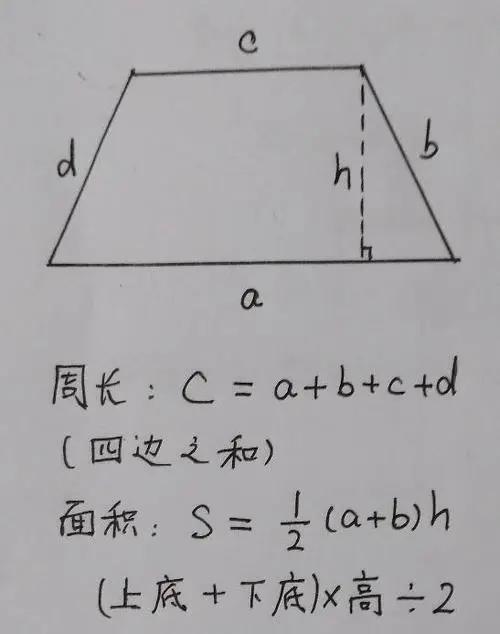 c
d
h
b
a
周长: C = a+b+c+d
(四边之和)
面积: S = 1/2 (a+b)h
(上底 + 下底)×高÷2